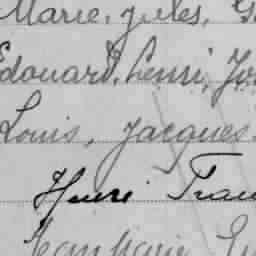 Marie, Jules, G
Edouard, Henri, Jo
Louis, Jacques
Henri Fran